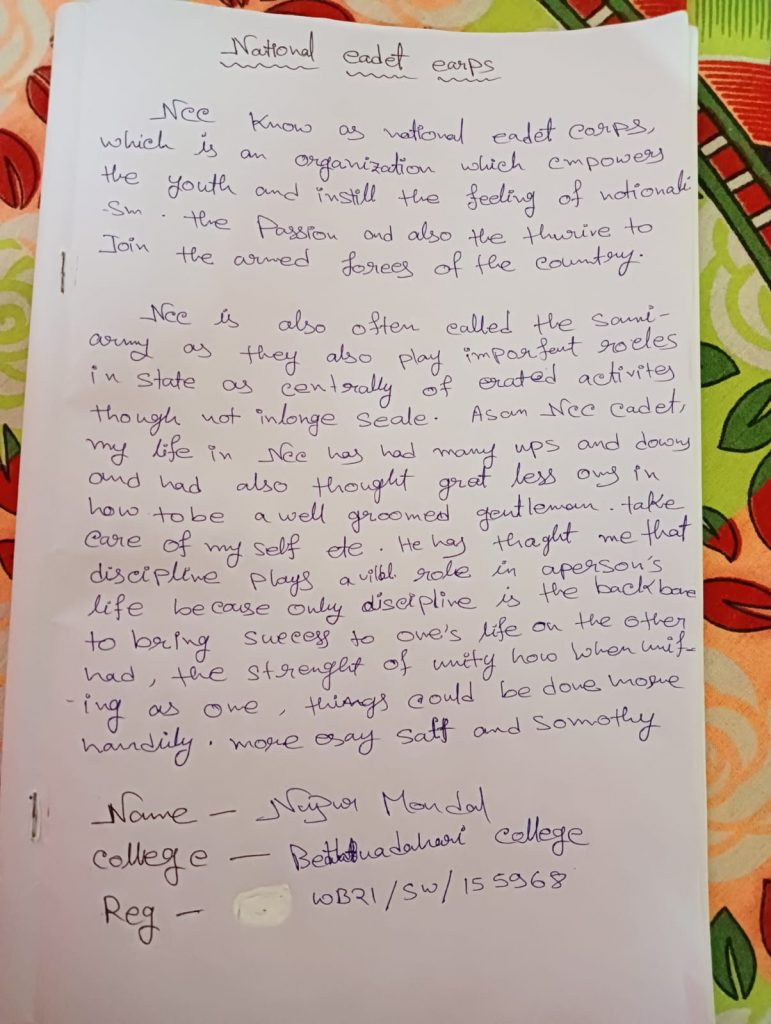 National cadet corps
NCC Know as national cadet Corps,
which is an organization which empowers
the youth and instill the feeling of notionali
-Sm. the Passion and also the thurive to
Join the armed forces of the country.
NCC is also often called the Sami-
army as they also play imporfent roeles
in State as centrally of erated activites
though not inlonge scale. Asan NCC cadet,
my life in NCC has had many ups and downs
and had also thought grat less ons in
how tobe a well groomed gentleman. take
care of my self etc. He has thaght me that
discipline plays a role in aperson's
life because only discipline is the backbone
to bring success to one's life on the other
had, the strenght of unity how when unif-
-ing as one, things could be done more
handily. more esay Satt and Somothy
Name - Mondal
college - Bethuadahari college
Reg - WB21/SW/155968